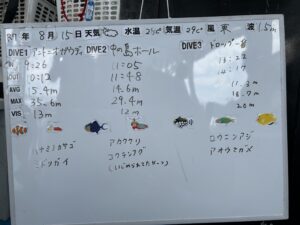 R7年 8月15日 天気 水温 29℃ 気温 29℃ 風 東 波 1.5m
DIVE1 アントニオガウディ DIVE2 中の島ホール DIVE3
IN 9:26 11:05 13:22
OUT 10:12 11:48 14:17
AVG 15.4m 14.6m 11.3m
MAX 35.6m 29.4m 16.7m
VIS 13m 12m 20m
ハナミノカサゴ アカククリ ロウニンアジ
ミドリガイ コクテンフグ アオウミガメ